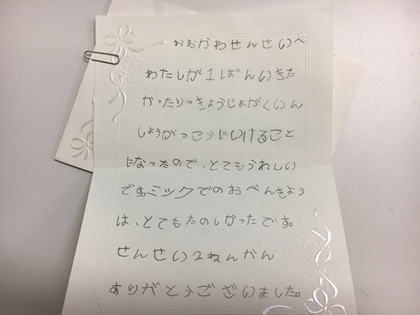 おおかわせんせいへ
わたしが1ばんいきた
かったりっきょうじょがくいん
しょうがっこうにいけること
になったので、とてもうれしい
です。ミックでのおべんきょう
は、とてもたのしかったです。
せんせい2ねんかん
ありがとうございました。